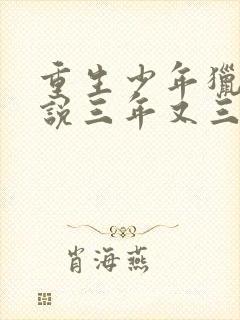 重生少年獵
說三年又三
肖海燕